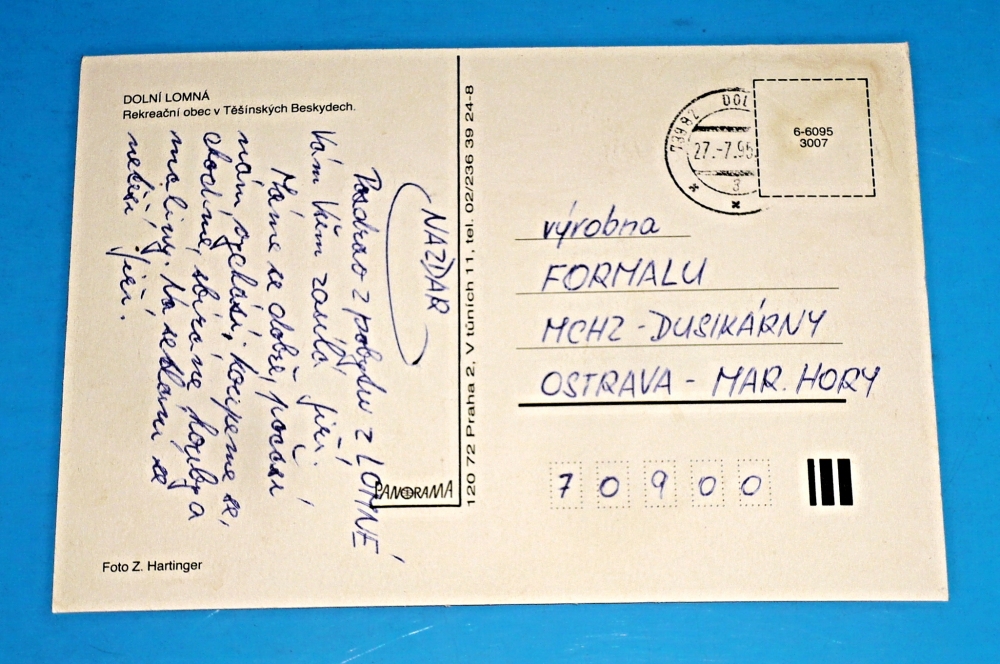 DOLNÍ LOMNÁ
Rekreační obec v Těšínských Beskydech.
NAZDAR
Pozdrav z pobytu z LOMNÉ
Vám všem zasílá Jiří.
Máme se dobře, počasí
nám vychází, koupeme se,
chodíme, sbíráme houby a
maliny. Na shledanou se
těší Jiří.
PANORAMA
Foto Z. Hartinger
120 72 Praha 2, V tůních 11, tel. 02/236 39 24-8
739 82 DOL
27.-7.96
3
6-6095
3007
výrobna
FORMALU
MCHZ - DUSIKÁRNY
OSTRAVA - MAR. HORY
7 0 9 0 0